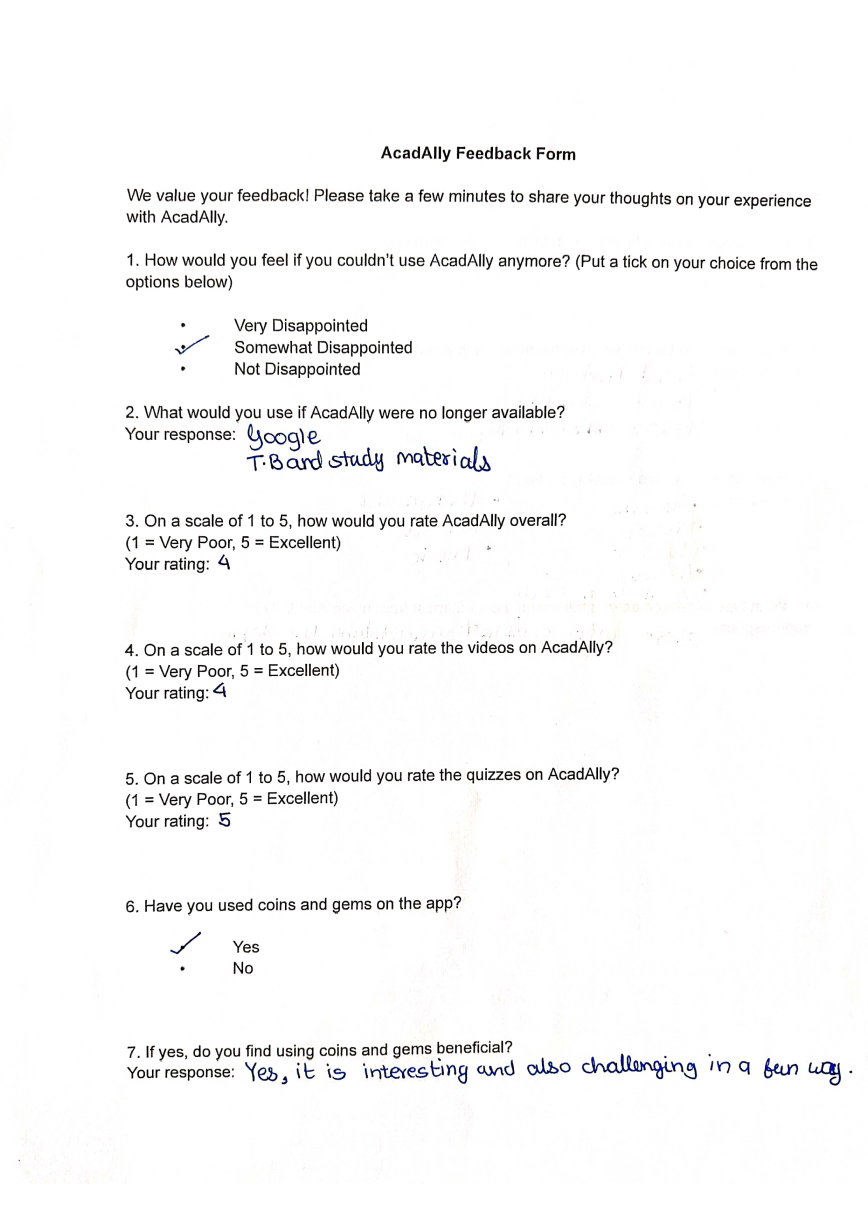 AcadAlly Feedback Form
We value your feedback! Please take a few minutes to share your thoughts on your experience
with AcadAlly.
1. How would you feel if you couldn't use AcadAlly anymore? (Put a tick on your choice from the
options below)
• Very Disappointed
✓ Somewhat Disappointed
• Not Disappointed
2. What would you use if AcadAlly were no longer available?
Your response: Google
T.B and study materials
3. On a scale of 1 to 5, how would you rate AcadAlly overall?
(1 = Very Poor, 5 = Excellent)
Your rating: 4
4. On a scale of 1 to 5, how would you rate the videos on AcadAlly?
(1 = Very Poor, 5 = Excellent)
Your rating: 4
5. On a scale of 1 to 5, how would you rate the quizzes on AcadAlly?
(1 = Very Poor, 5 = Excellent)
Your rating: 5
6. Have you used coins and gems on the app?
✓ Yes
• No
7. If yes, do you find using coins and gems beneficial?
Your response: Yes, it is interesting and also challenging in a fun way.